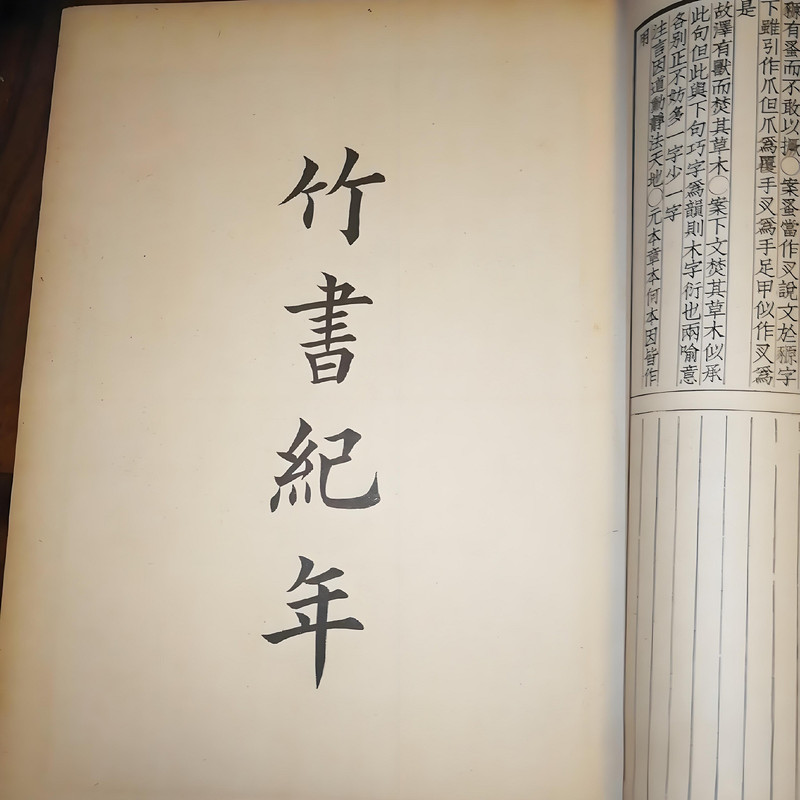 豲有蚤而不敢以撅○案蚤當作叉說文於豲字
下雖引作爪但爪爲覆手叉爲手足甲似作叉爲
是
故澤有獸而焚其草木○案下文焚其草木似承
此句但此與下句巧字爲韻則木字衍也兩喻意
各别正不妨多一字少一字
注言因道動靜法天地○元本章本何本因皆作
明
竹書紀年